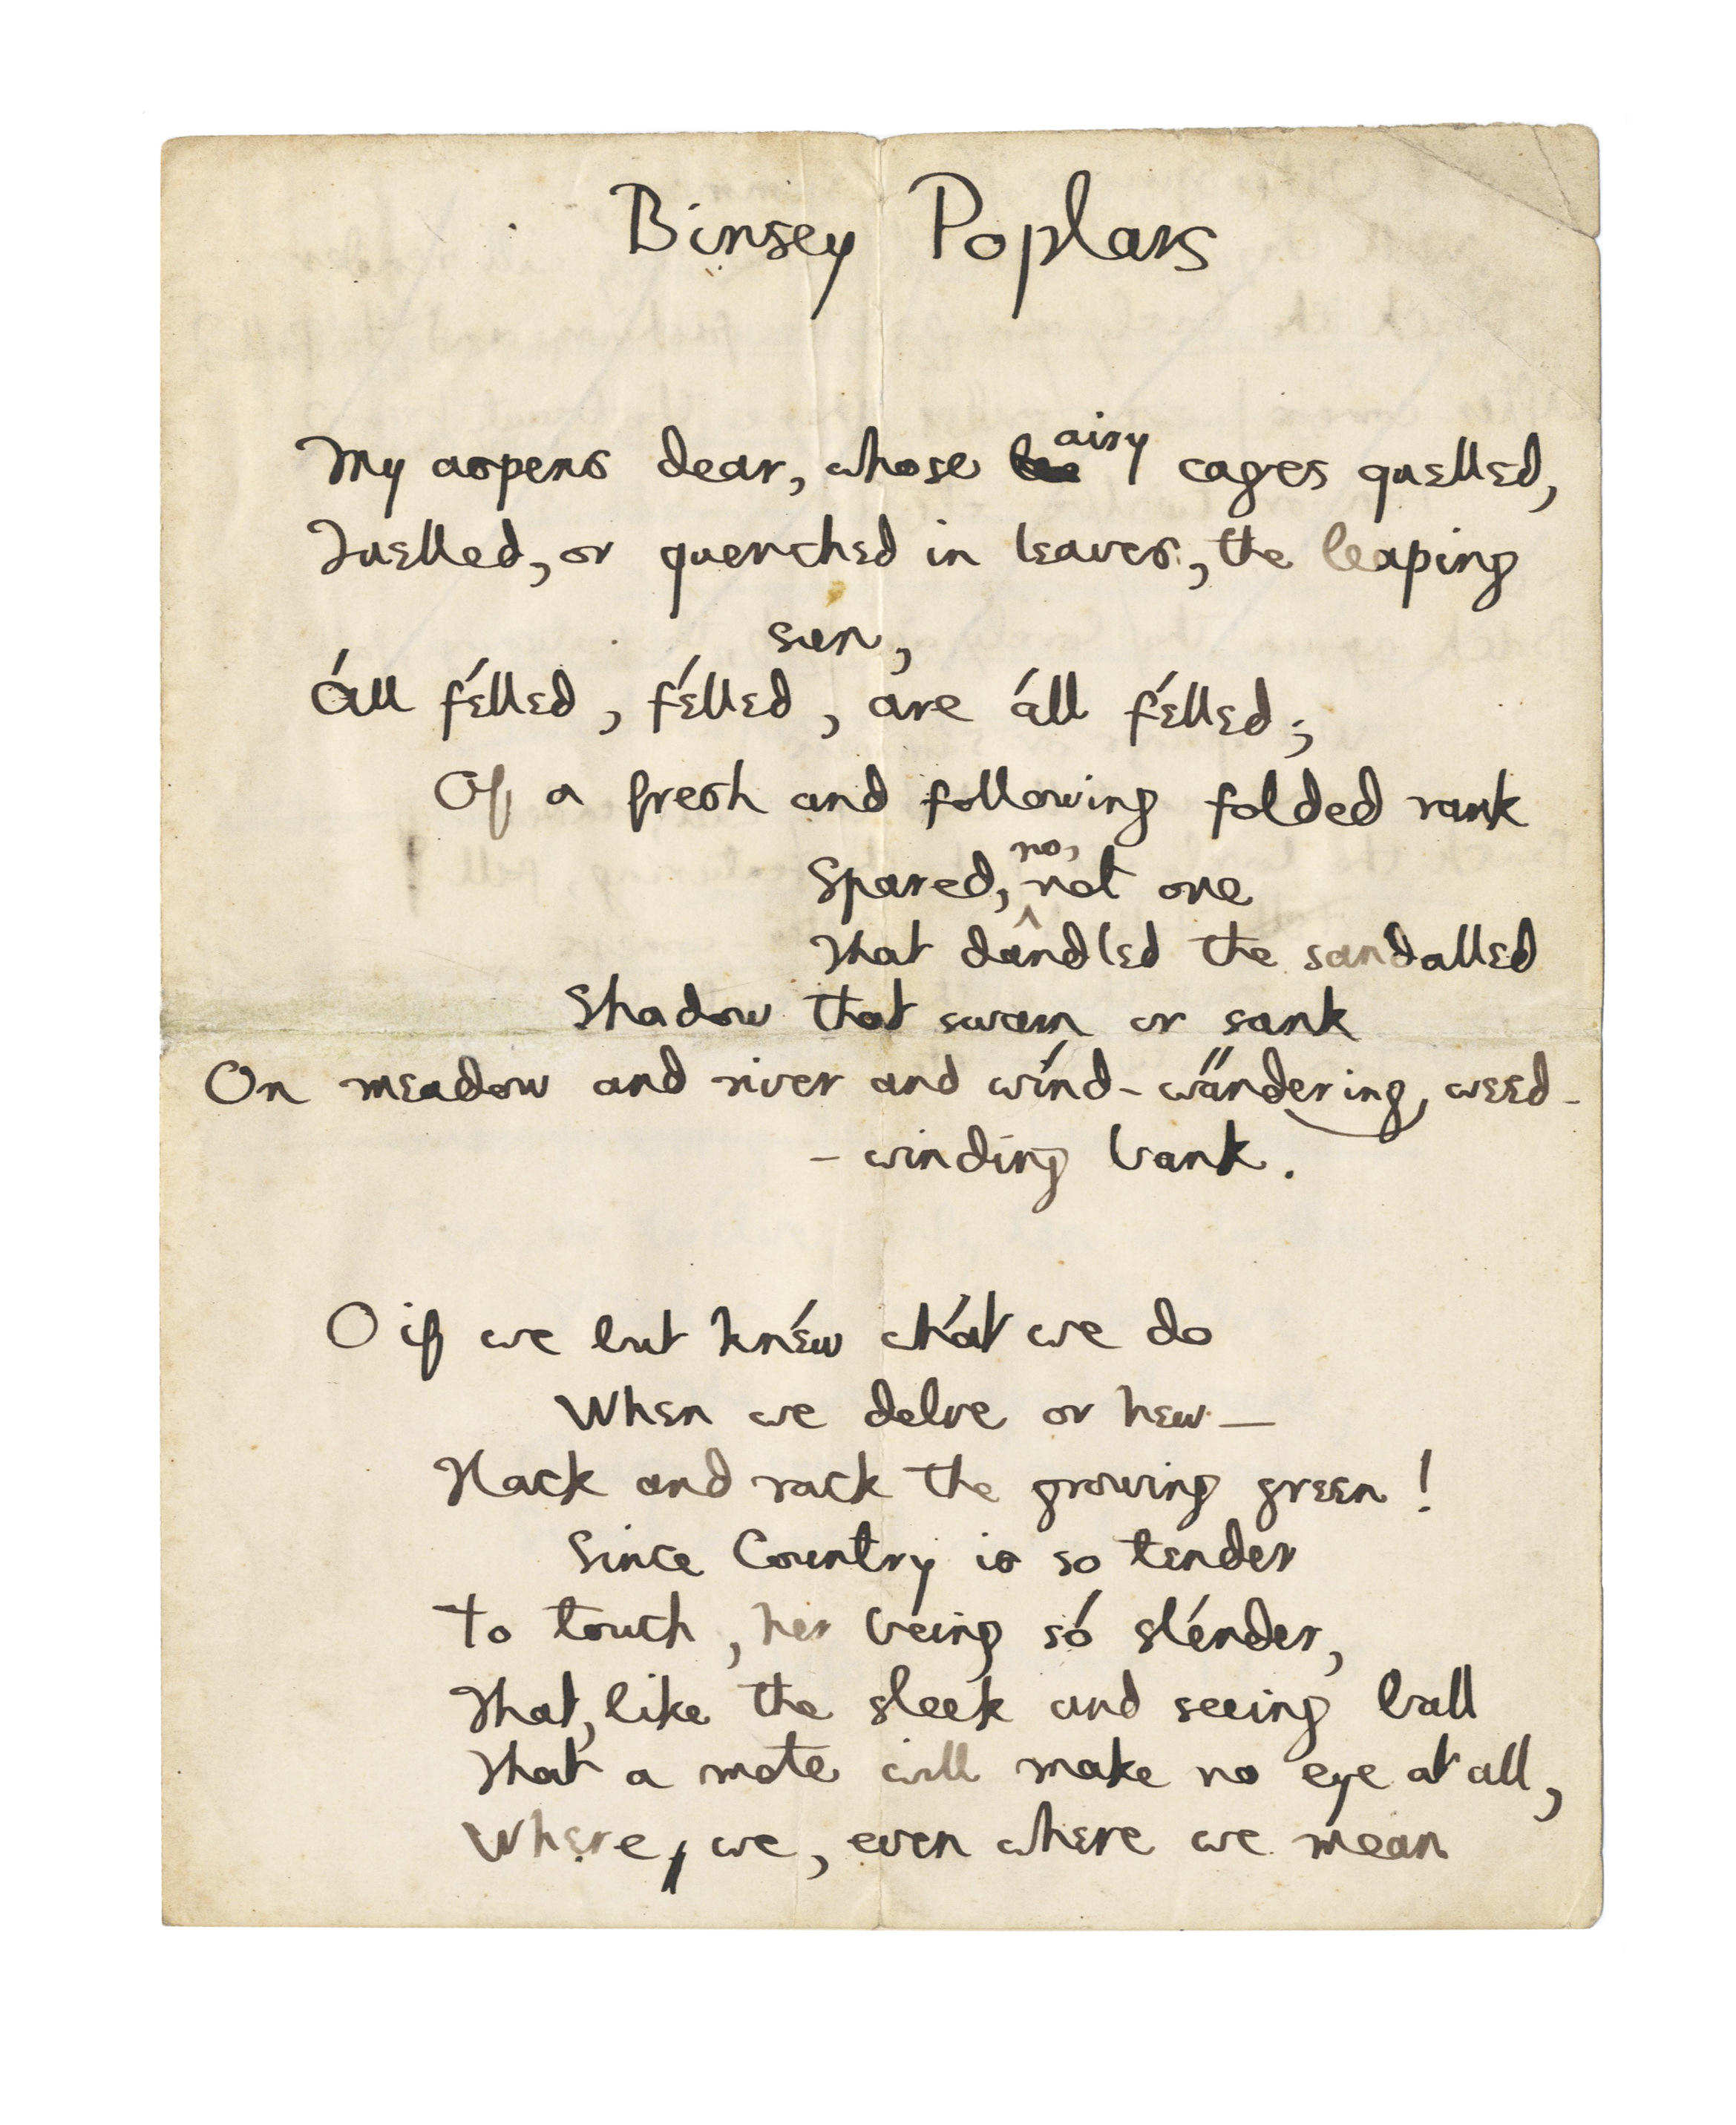 Binsey Poplars
My aspens dear, whose airy cages quelled,
Quelled, or quenched in leaves, the leaping
sun,
Áll félled, félled, are áll félled;
Of a fresh and following folded rank
Spared, no, not one
That dandled the sandalled
Shadow that swam or sank
On meadow and river and wínd-wände̮ring, weed-
-winding bank.
O if we but knéw whát we do
When we delve or hew—
Hack and rack the growing green!
Since Country is so tender
To touch, her being só slénder,
That, like the sleek and seeing ball
That a mote will make no eye at all,
Where, we, even where we mean